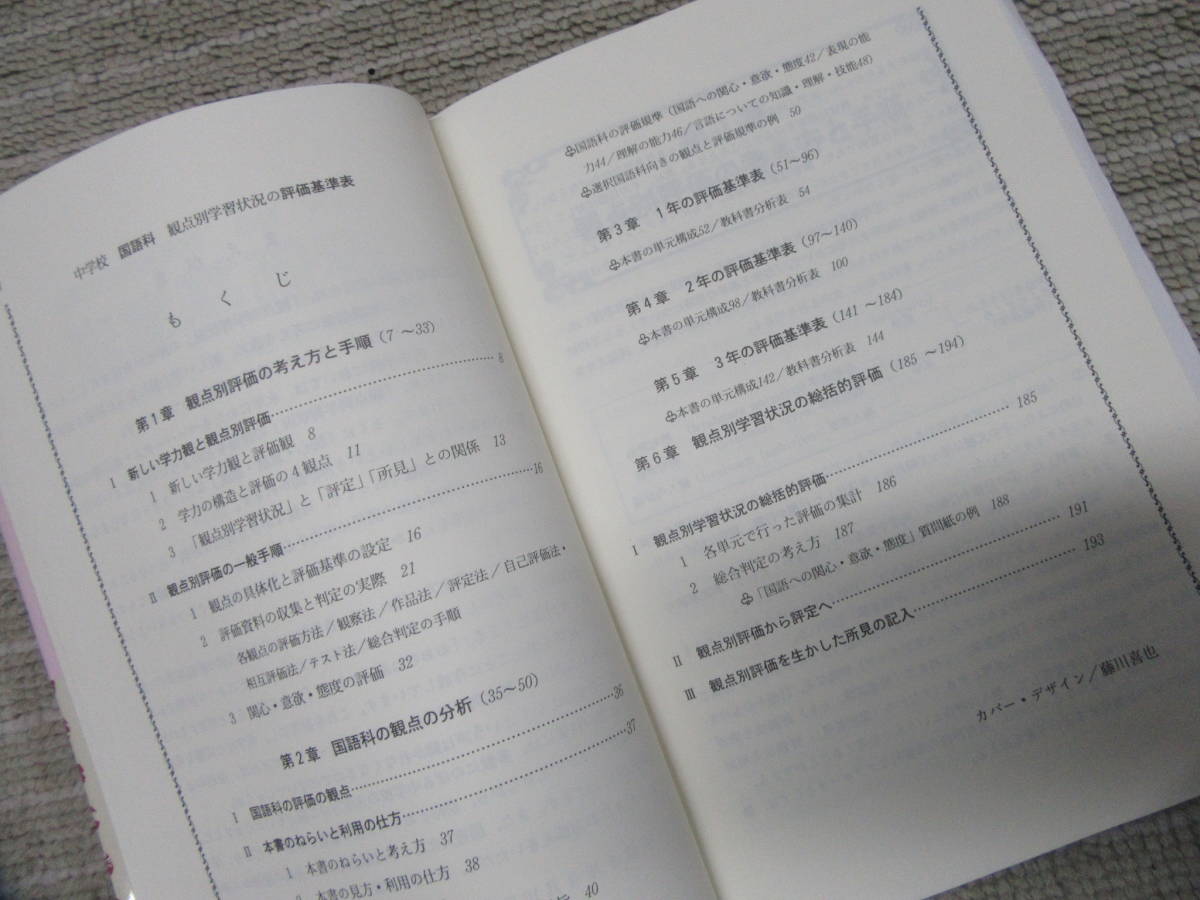 中学校 国語科 観点別学習状況の評価基準表
もくじ
第1章 観点別評価の考え方と手順(7〜33)
I 新しい学力観と観点別評価……………8
1 新しい学力観と評価観 8
2 学力の構造と評価の4観点 11
3 「観点別学習状況」と「評定」「所見」との関係 13
II 観点別評価の一般手順……………16
1 観点の具体化と評価基準の設定 16
2 評価資料の収集と判定の実際 21
各観点の評価方法／観察法／作品法／評定法／自己評価・
相互評価法／テスト法／総合判定の手順
3 関心・意欲・態度の評価 32
第2章 国語科の観点の分析(35〜50)
I 国語科の評価の観点……………36
II 本書のねらいと利用の仕方……………37
1 本書のねらいと考え方 37
2 本書の見方・利用の仕方 38
40
♧国語科の評価規準(国語への関心・意欲・態度42／表現の能
力44／理解の能力46／言語についての知識・理解・技能48)
♧選択国語科向きの観点と評価規準の例 50
第3章 1年の評価基準表(51〜96)
♧本書の単元構成52／教科書分析表 54
第4章 2年の評価基準表(97〜140)
♧本書の単元構成98／教科書分析表 100
第5章 3年の評価基準表(141〜184)
♧本書の単元構成142／教科書分析表 144
第6章 観点別学習状況の総括的評価(185〜194)
I 観点別学習状況の総括的評価……………185
1 各単元で行った評価の集計 186
2 総合判定の考え方 187
♧「国語への関心・意欲・態度」質問紙の例 188
II 観点別評価から評定へ……………191
III 観点別評価を生かした所見の記入……………193
カバー・デザイン／藤川喜也